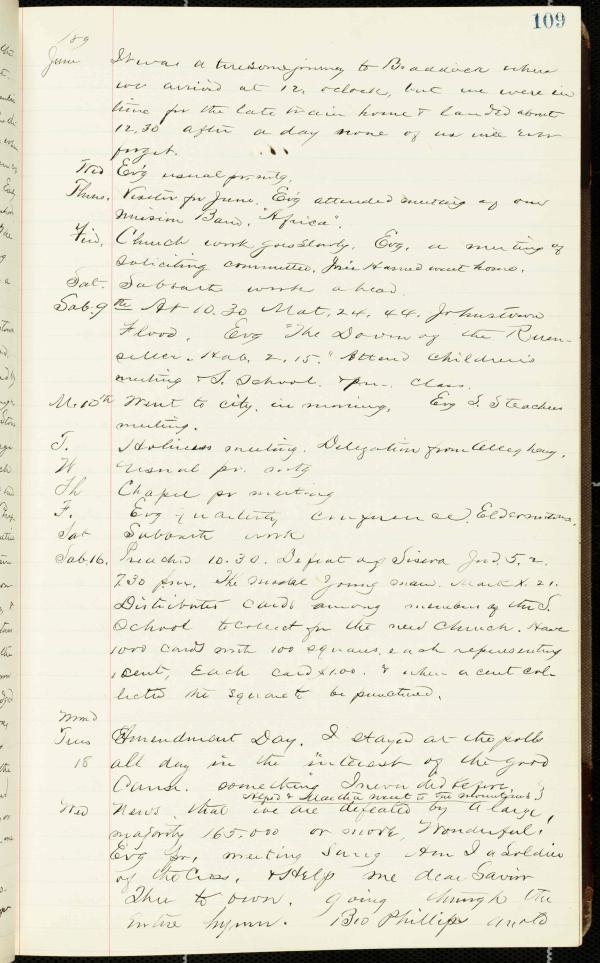 109
189
June It was a tiresome journey to Braddock where
we arrived at 12, oclock, but we were in
time for the late train home & landed about
12,30 after a day none of us will ever
forget.
Wed Ev'g usual pr. mtg.
Thurs. Visitor for June. Ev'g attended meeting of our
Mission Band. "Africa".
Fri. Church work goes slowly. Evg. a meeting of
soliciting committee. Josie Hamed went home.
Sat. Sabbath work ahead.
Sab. 9th At 10.30 Mat. 24. 44. Johnstown
Flood. Evg "The Doom of the Rum-
seller. Hab. 2, 15." Attend children's
meeting & S. School. & pm. class.
M. 10th Went to city, in morning. Evg S. S teachers
meeting.
T. Holiness meeting. Delegation from Allegheny.
W Usual pr. mtg
Th Chapel pr meeting
F. Evg quarterly conference.
Sat Sabbath work
Sab. 16. Preached 10.30. Defeat of Sisera Jud. 5, 2.
7.30 p.m. The model young man. Mark X. 21.
Distributed cards among members of the S.
School to collect for the new church. Have
1000 cards with 100 squares, each representing
1 cent, Each card $1.00. & when a cent col-
lected the square to be punctured.
Mond
Tues Amendment Day. I stayed at the polls
18 all day in the interest of the good
Cause. something I never did before.
went to the mountains
Wed News that we are defeated by a large
majority 165,000 or more, Wonderful!
Ev'g pr. meeting Sung Am I a Soldier
of the Cross. & Help me dear Savior
Thee to own. going through the
entire hymn. Bro Phillips